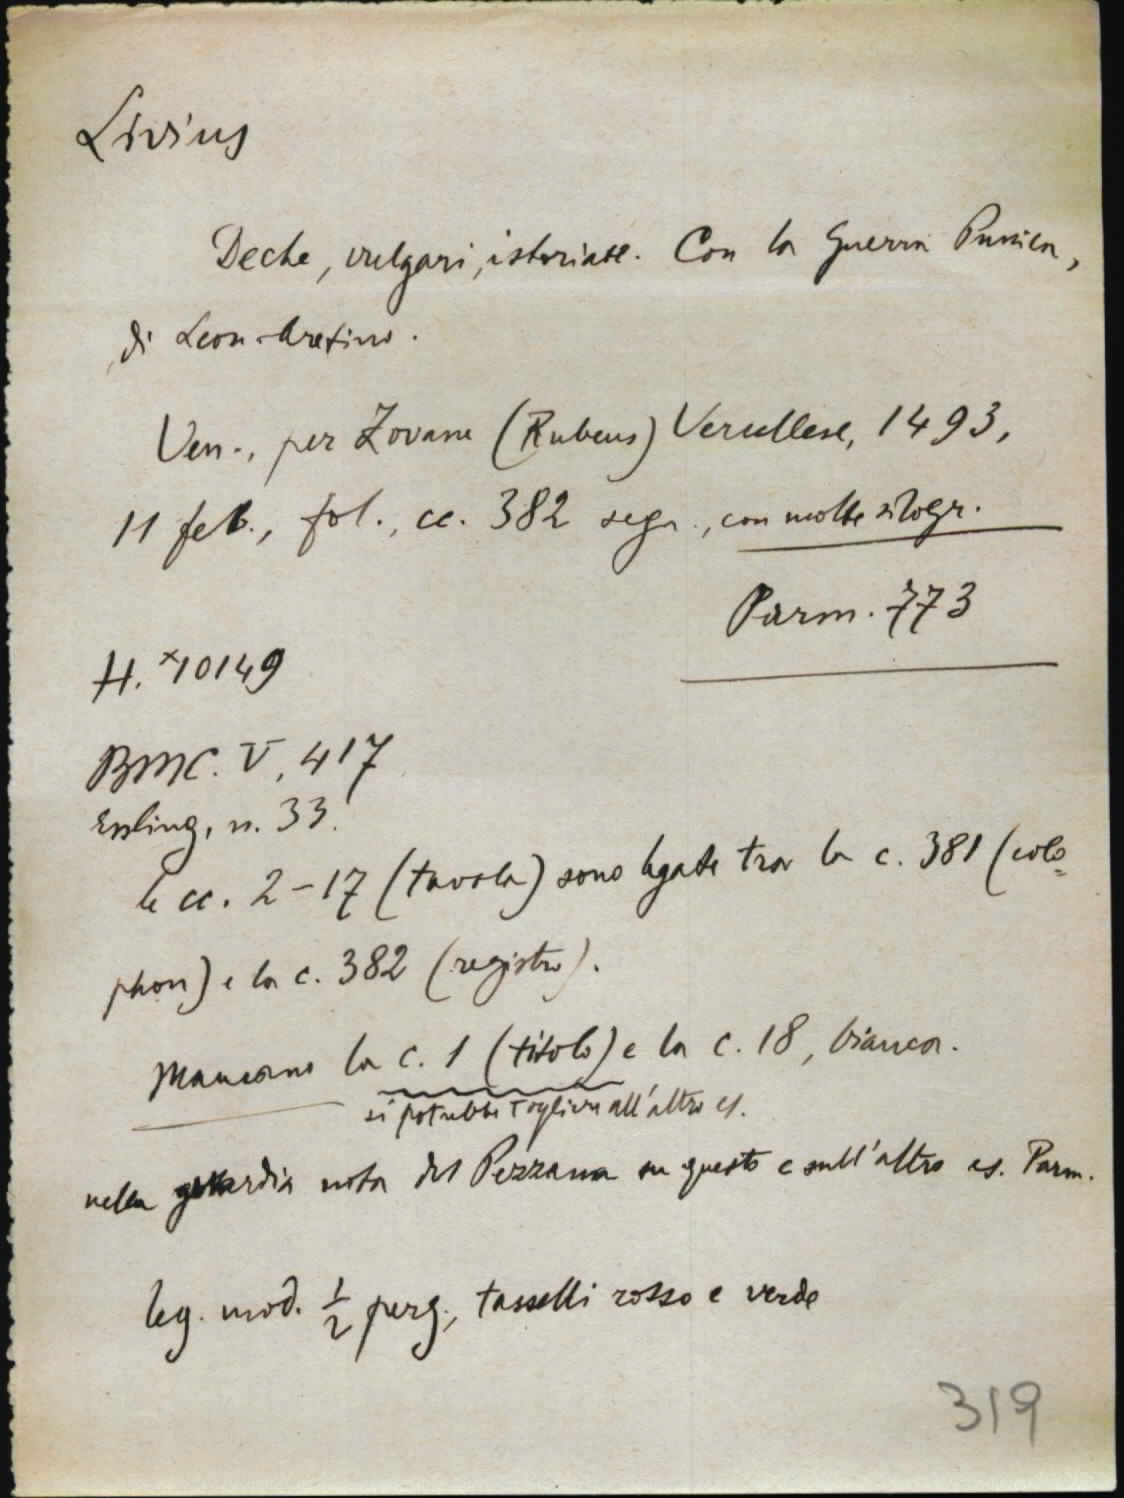 Livius
Deche, vulgari, istoriate. Con la Guerra Punica,
di Leon. Aretino.
Ven., per Zovane (Rubeus) Vercellese, 1493,
11 feb., fol., cc. 382 segn., con molte silogr.
Parm. 773
H. ×10149
BMC. V, 417
Essling, n. 33.
le cc. 2-17 (tavola) sono legate tra la c. 381 (colo=
phon) e la c. 382 (registro).
Mancano la c. 1 (titolo) e la c. 18, bianca.
si potrebbe togliere all'altro es.
nella guardia nota del Pezzana su questo e sull'altro es. Parm.
leg. mod. 1/2 perg., tasselli rosso e verde
319